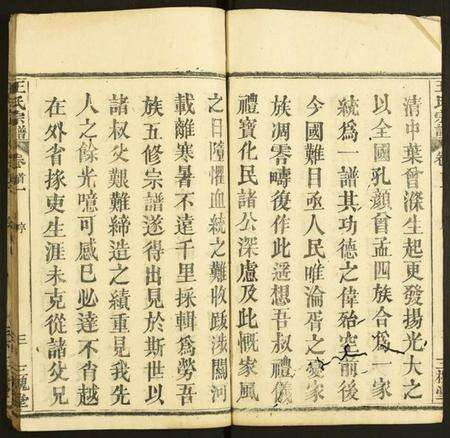 清中葉曾滌生起更發揚光大之
以全國孔顏曾孟四族合爲一家
統爲一譜其功德之偉殆空前後
今國難日亟人民唯淪胥之憂家
族凋零疇復作此遥想吾叔禮儀
禮寶化民諸公深慮及此慨家風
之日隳懼血統之難收跋涉關河
載離寒暑不遠千里採輯爲勞吾
族五修宗譜遂得出見於斯世以
諸叔父艱難締造之績重見我先
人之餘光噫可感已必達不肖越
在外省掾吏生涯未克從諸父兄
王氏宗譜
卷首一
三
三槐堂